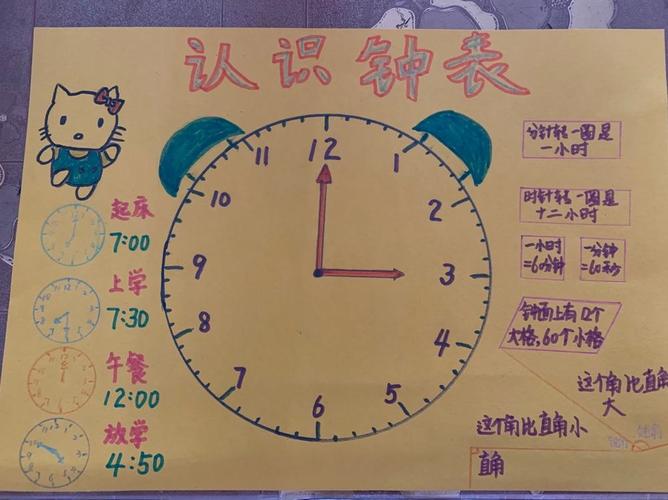 认识钟表
起床
7:00
上学
7:30
午餐
12:00
放学
4:50
12
1
2
3
4
5
6
7
8
9
10
11
分针转一圈是
一小时
时针转一圈是
十二小时
一小时
=60分钟
一分钟
=60秒
钟面上有12个
大格,60个小格
这个角比直角
大
这个角比直角小
直角